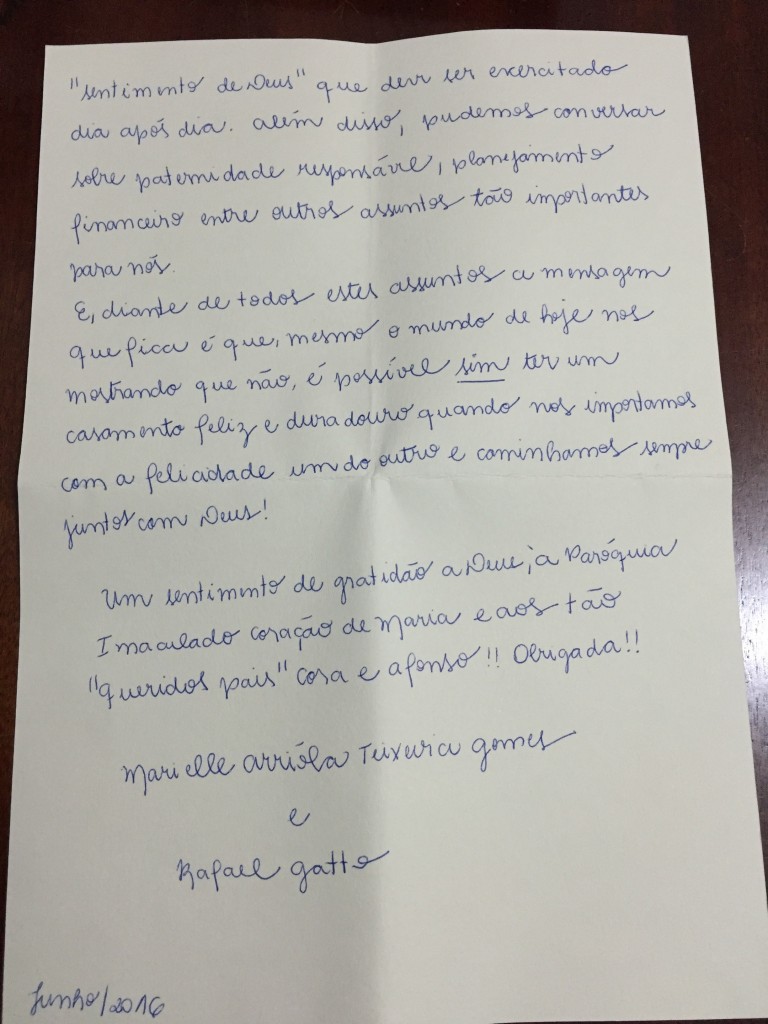 "sentimento de Deus" que deve ser exercitado
dia após dia. Além disso, pudemos conversar
sobre paternidade responsável, planejamento
financeiro entre outros assuntos tão importantes
para nós.
E, diante de todos estes assuntos a mensagem
que fica é que, mesmo o mundo de hoje nos
mostrando que não, é possível sim ter um
casamento feliz e duradouro quando nos importamos
com a felicidade um do outro e caminhamos sempre
juntos com Deus!
Um sentimento de gratidão a Deus, a Paróquia
Imaculado Coração de Maria e aos tão
"queridos pais" Cosa e Afonso!! Obrigada!!
Marielle Arrióla Teixeira Gomes
e
Rafael Gatto
Junho/2016